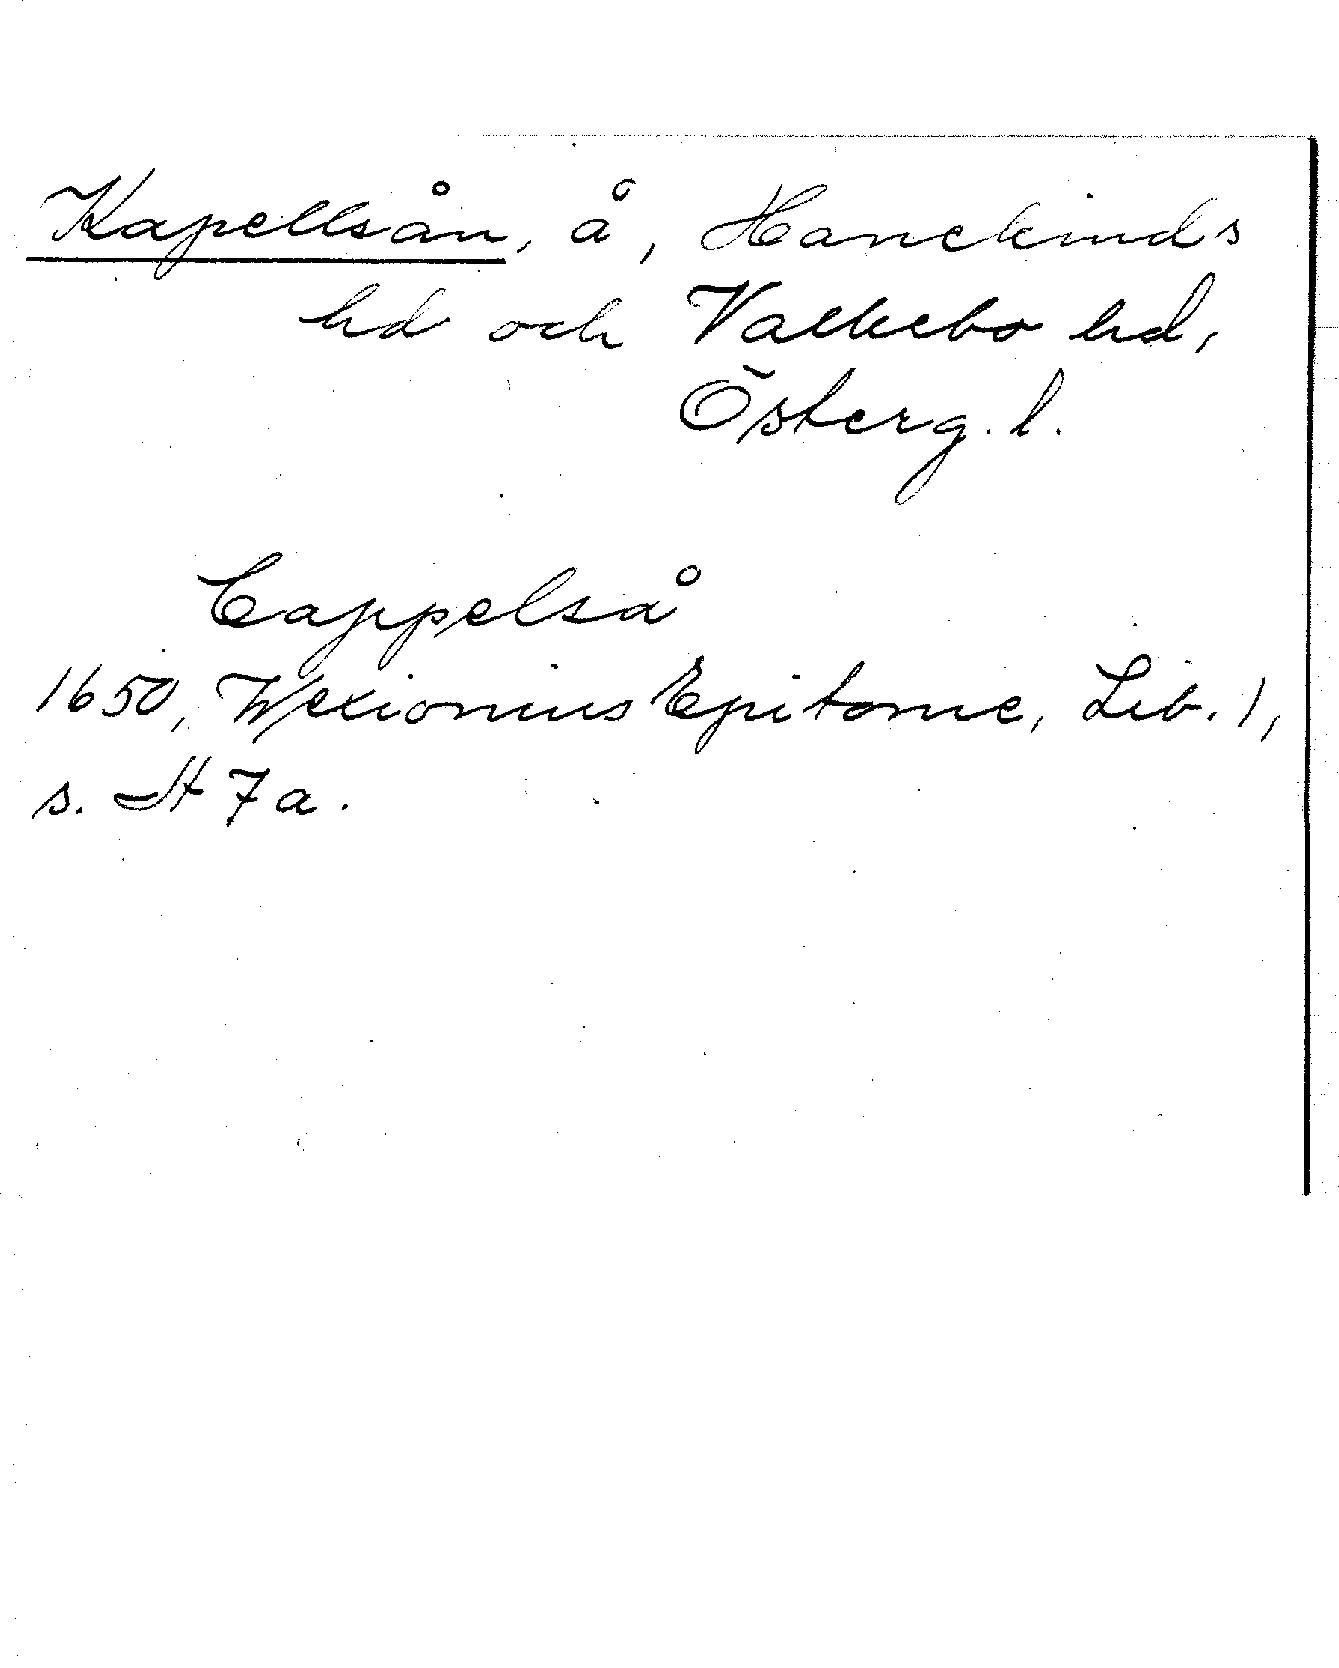 Kapellsån, å, Hanekinds
hd och Valkebo hd,
Österg. l.
Cappelså
1650, Wexionius Epitome, Lib. 1,
s. A 7 a.